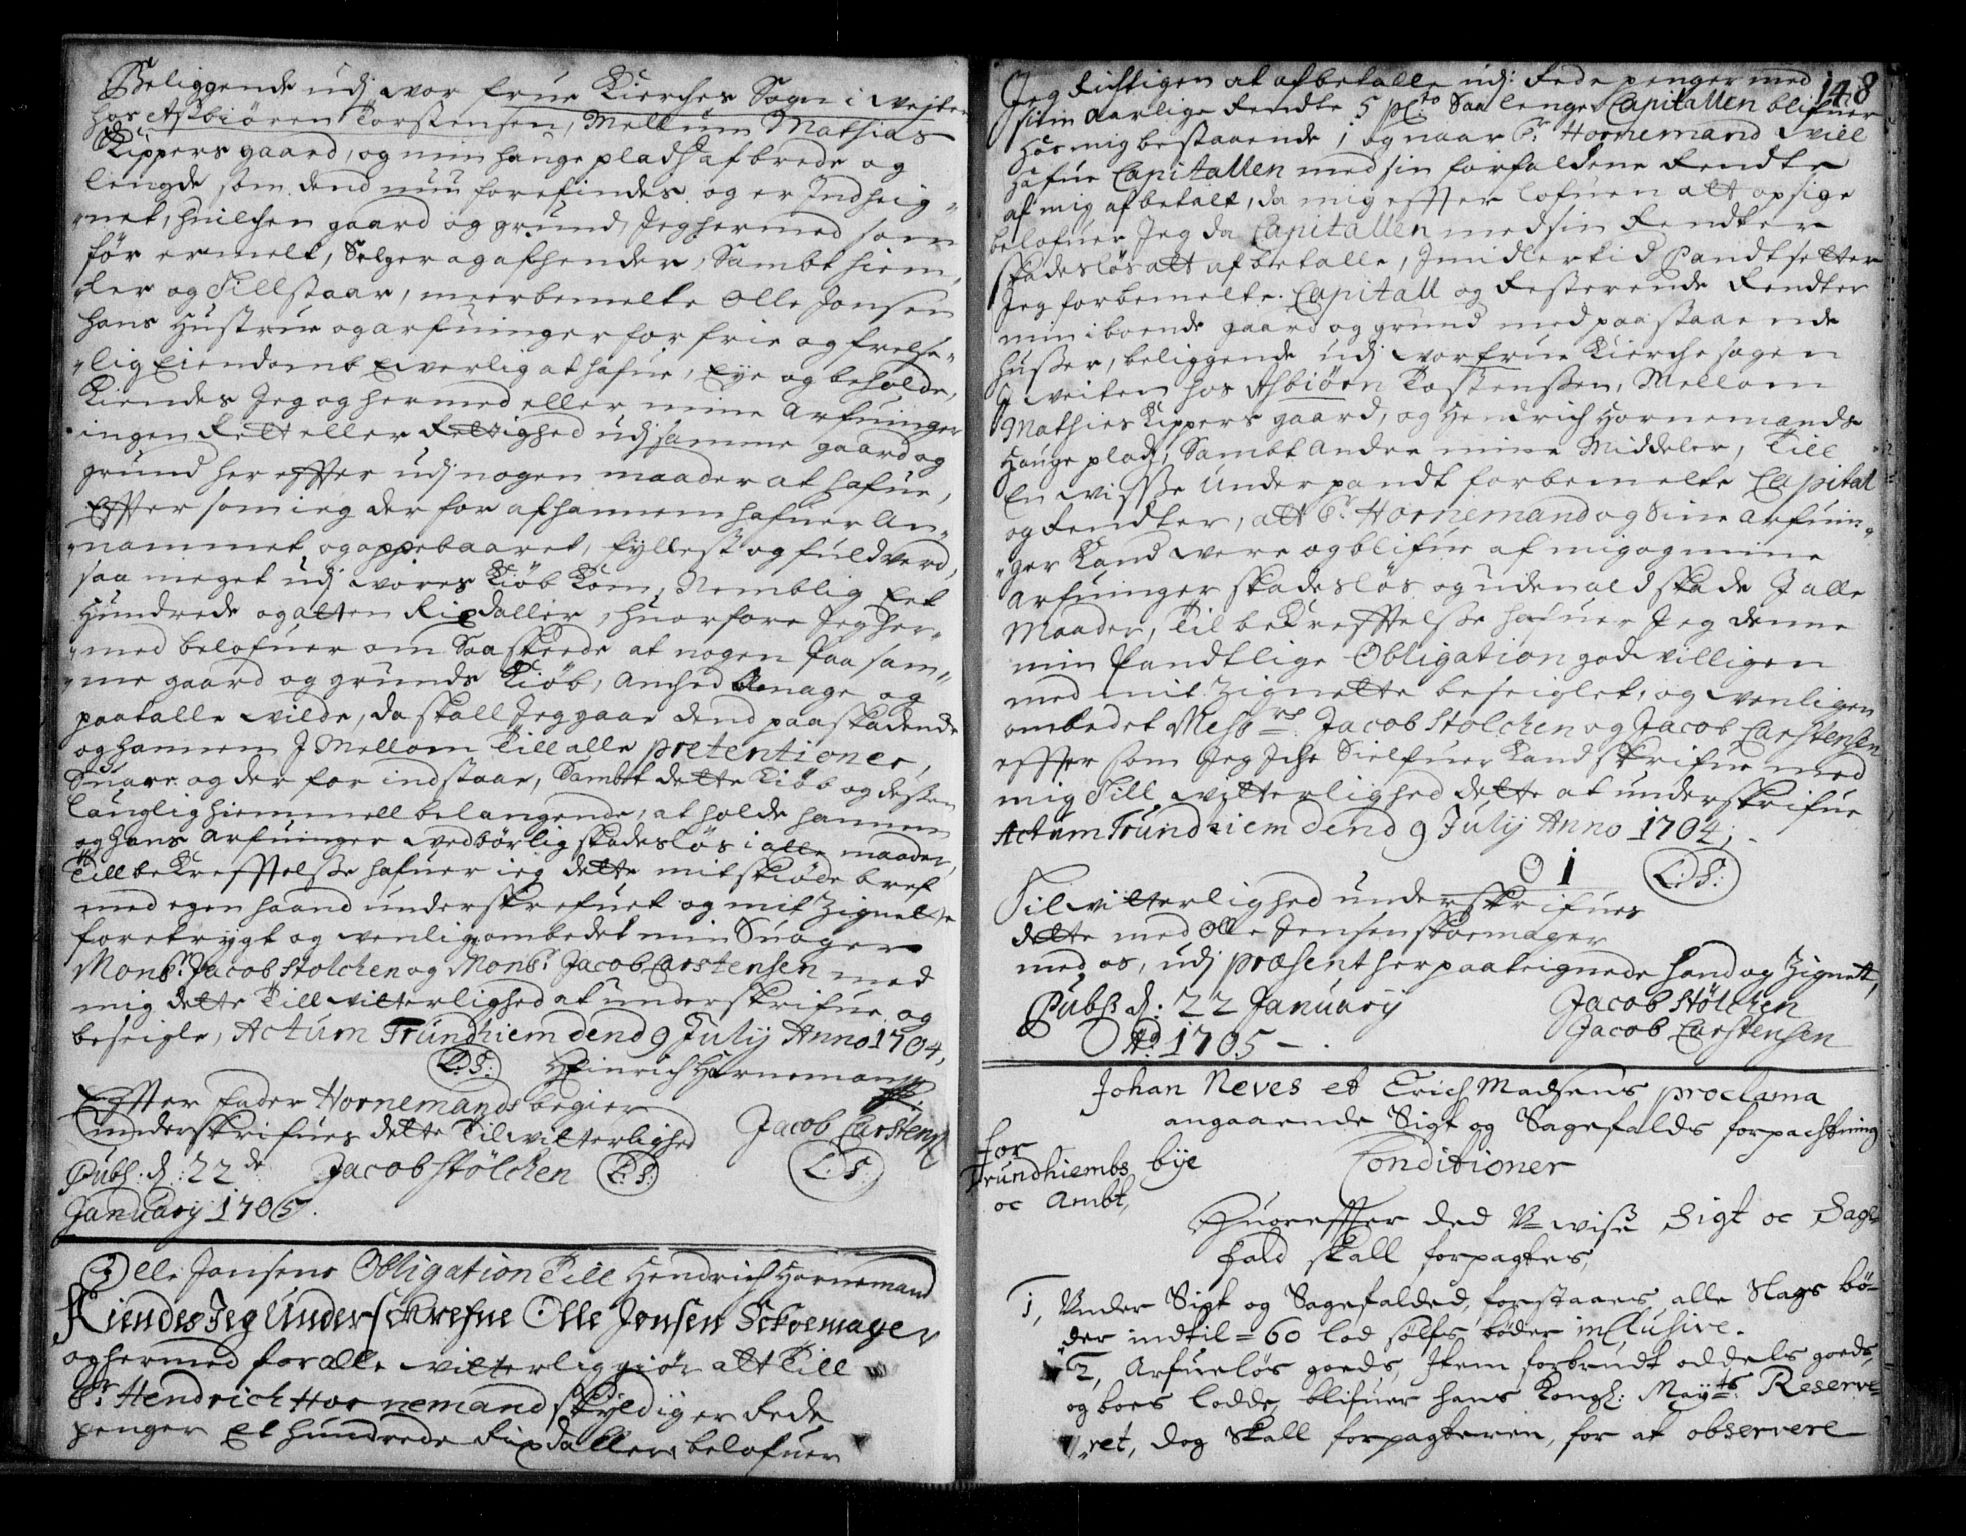 Beliggende udj wor frue Kierches Sogn i wejten
hos Assbiören Torstensen, Mellum Mathias
Kippers gaard, og min hauge plads af brede og
lengde som dend nuu forefindes og er Indheig-
-net, huilchen gaard og grund, Jeg hermed som
för ermelt, Selger og afhender, Sambt hiem-
-ler og Tillstaar, meerbemelte Olle Jonsen
hans Hustrue og arfuinger for frie og frelse-
-lig Eiendomb Ewerlig at hafue, Eye og beholde,
Kiendes Jeg og hermed eller mine Arfuinger
ingen Rett eller Rettighed udj samme gaard og
grund her effter udj nogen maader at hafue,
Effter som ieg der for af hannem hafuer An-
-nammet og oppebaaret, fyllest og fuld werd,
saa meget udj wores Kiöb Kom, Nemblig Eet
Hundrede og atten Rixdaller, huorfore Jeg her-
-med belofuer om Saa skeede at nogen paa sam-
-me gaard og grunds Kiöb, Anched Amage og
paatalle wilde, da skall Jeg gaae dend paaskadende
og hannem J Mellom Till alle pretentioner,
Suare og der for indstaae, Sambt dette Kiöb og dessen
lauglig hiemmell belangende, at holde hannem
og hans Arfuinger wedbörlig skadeslös i alle maader,
Till beKrefftelsse hafuer ieg dette mit skiöde bref
med egen haand underskrefuet og mit Zignette
foretrygt og wenlig ombedet min Suoger
Monsr. Jacob Stölchen og Monsr. Jacob Carstensen med
mig dette Till witterlighed at underskrifue og
beseigle, Actum Trundhiem dend 9 Julij Anno 1704,
L:S: Hinrich Hornemann
Effter fader Hornemands begier
underskrifues dette Til witterlighed
Jacob Carstens
Publ: d: 22de Jacob Stölchen L:S: L:S:
January 1705.
Olle Jonsens Obligation Till Hendrich Hornemand
Kiendes Jeg Underschrefne Olle Jensen Schoemager
og hermed for alle witterlig giör att Till
Sr. Hendrich Hornemand skyldig er Rede
penger Et hundrede Rixdaller, belofuer
148
Jeg Richtigen at afbetalle udj: Rede penger med
sin Aarlige Rendte 5 pCto Saa lenge Capitallen blifuer
hos mig bestaaende, og naar Sr. Hornemand will
hafue Capitallen med sin forfaldene Rendte
af mig afbetalt, da mig effter lofuen att opsige
belofuer Jeg da Capitallen med sin Rendter
skadeslös att afbetalle, Jmidlertid Pandtsetter
Jeg forbemelte Capitall og Resterende Rendter
min iboende gaard og grund med paastaaende
husser, beliggende udj worfrue Kierche sogen
J weiten hos Asbiörn Tostenssen, Mellom
Mathies Kippers gaard, og Hendrich Hornemands
Hauge plads, Sambt andre mine Middeler, Till
En wisse Underpandt forbemelte Capital
og Rendter, att Sr. Hornemand og Sine arfuin-
-ger Kand were og blifue af mig og mine
Arfuinger skadeslös og uden ald skade J alle
Maader, Til beKrefftelsse hafuer Jeg denne
min Pandtlige Obligation godwilligen
med mit Zignette beseiglet, og wenligen
ombedet Messrs. Jacob Stolchen og Jacob Carstensen
effter som Jeg Iche Sielfuer Kand skrifue med
mig Till witterlighed dette at underskrifue
Actum Trundhiem dend 9 Julij Anno 1704,
O I L:S:
Til witterlighed underskrifues
dette med Olle Jensen skoemager
med os, udj præsent her paa teignede hand og Zignett,
Publ: d: 22 January Jacob Stölchen
Ao 1705 Jacob Carstensen
Johan Neves et Erich Madsens proclama
angaaende Sigt og Sagefalds forpachtning
for
Trundhiembs bye
oc Ambt,
Conditioner
Huoreffter ded U-wise Sigt oc Sage
fald skall forpagtes,
1, Under Sigt og Sagefalded, forstaaes alle Slags bö-
-der indtil 60 lod sölfs böder inclusive.
2, Arfuelös goeds, Item forbrudt oddels goeds,
og boes lodde blifuer hans Kongl: Mayts. Reserve-
-ret, dog skall forpagteren, for at observere